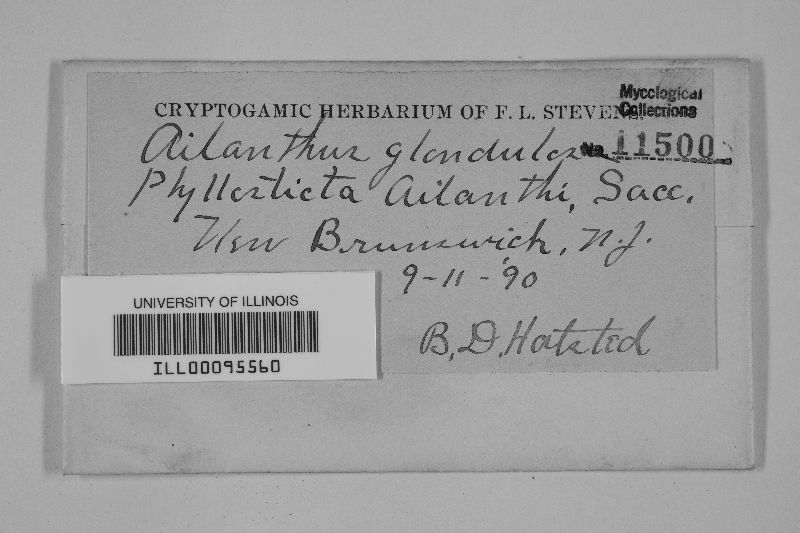 CRYPTOGAMIC HERBARIUM OF F. L. STEVENS.
Mycological
Collections
No. 11500
Ailanthus glandulosa
Phyllosticta Ailanthi, Sacc.
New Brunswick, N.J.
9-11-'90
B.D. Halsted
UNIVERSITY OF ILLINOIS
ILL00095560